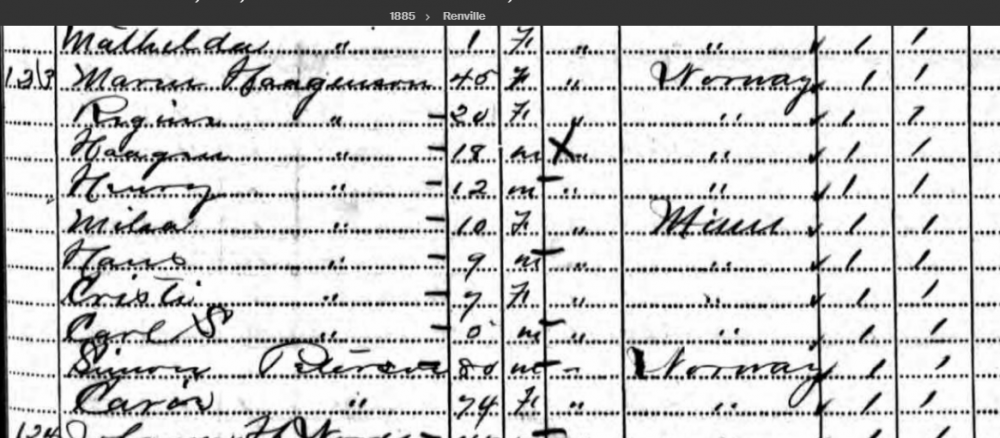 1885 › Renville
Mathelda " 1 F " " / /
123 Maren Haagenson 45 F " Norway / /
Regina " 20 F " " / /
Haagen " 18 m X " " / /
Henry " 12 m " " / /
Milea " 10 F " Minn / /
Hans " 9 m " " / /
Cristi " 7 F " " / /
Carl S " 5 m " / /
Simon Peterson 80 m " Norway / /
" 74 F " " / /
124